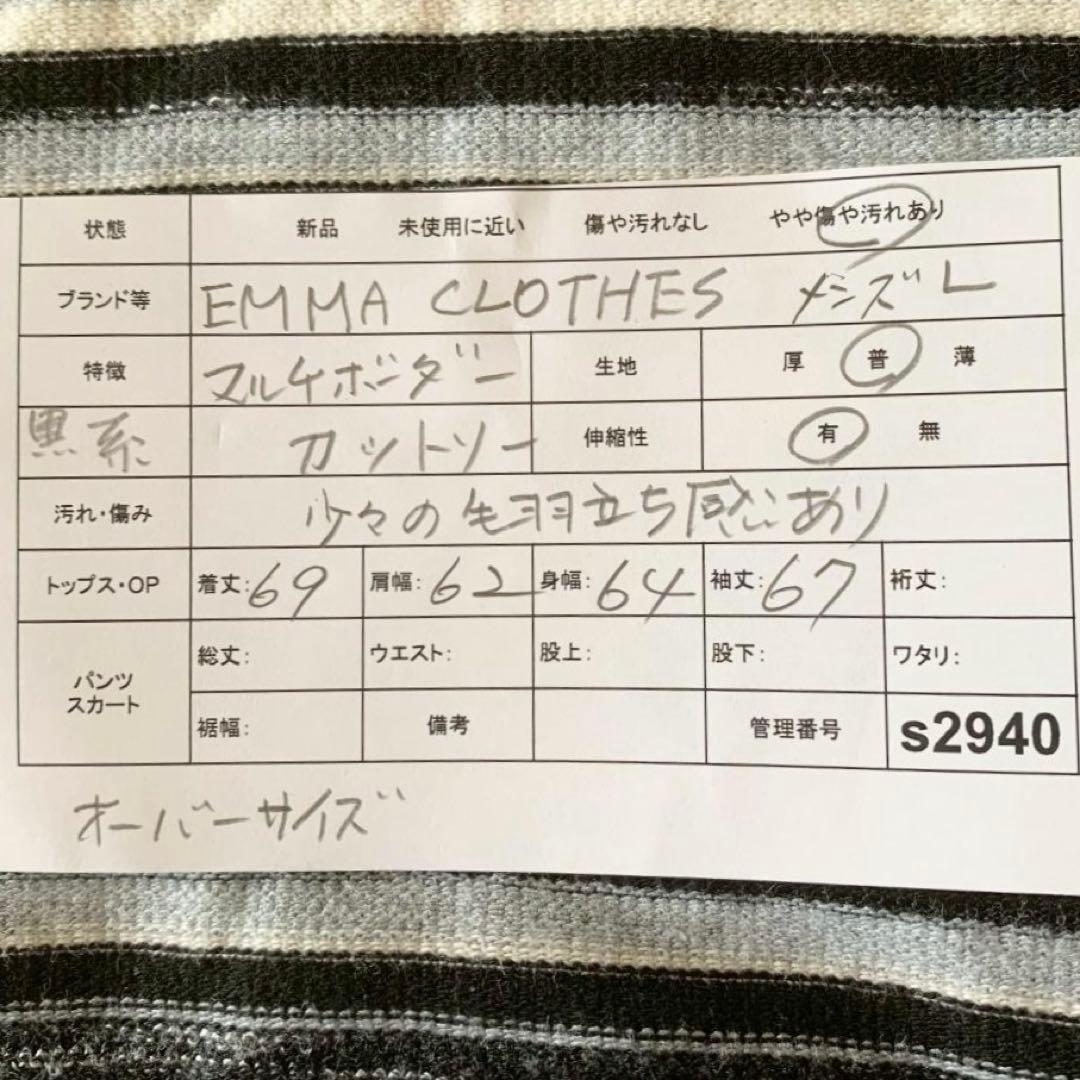 状態 新品 未使用に近い 傷や汚れなし やや傷や汚れあり
ブランド等 EMMA CLOTHES メンズ L
特徴 マルチボーダー 生地 厚 普 薄
黒系 カットソー 伸縮性 有 無
汚れ・傷み 少々の毛羽立ち感あり
トップス・OP 着丈:69 肩幅:62 身幅:64 袖丈:67 裄丈:
パンツ スカート 総丈: ウエスト: 股上: 股下: ワタリ:
裾幅: 備考 管理番号 s2940
オーバーサイズ